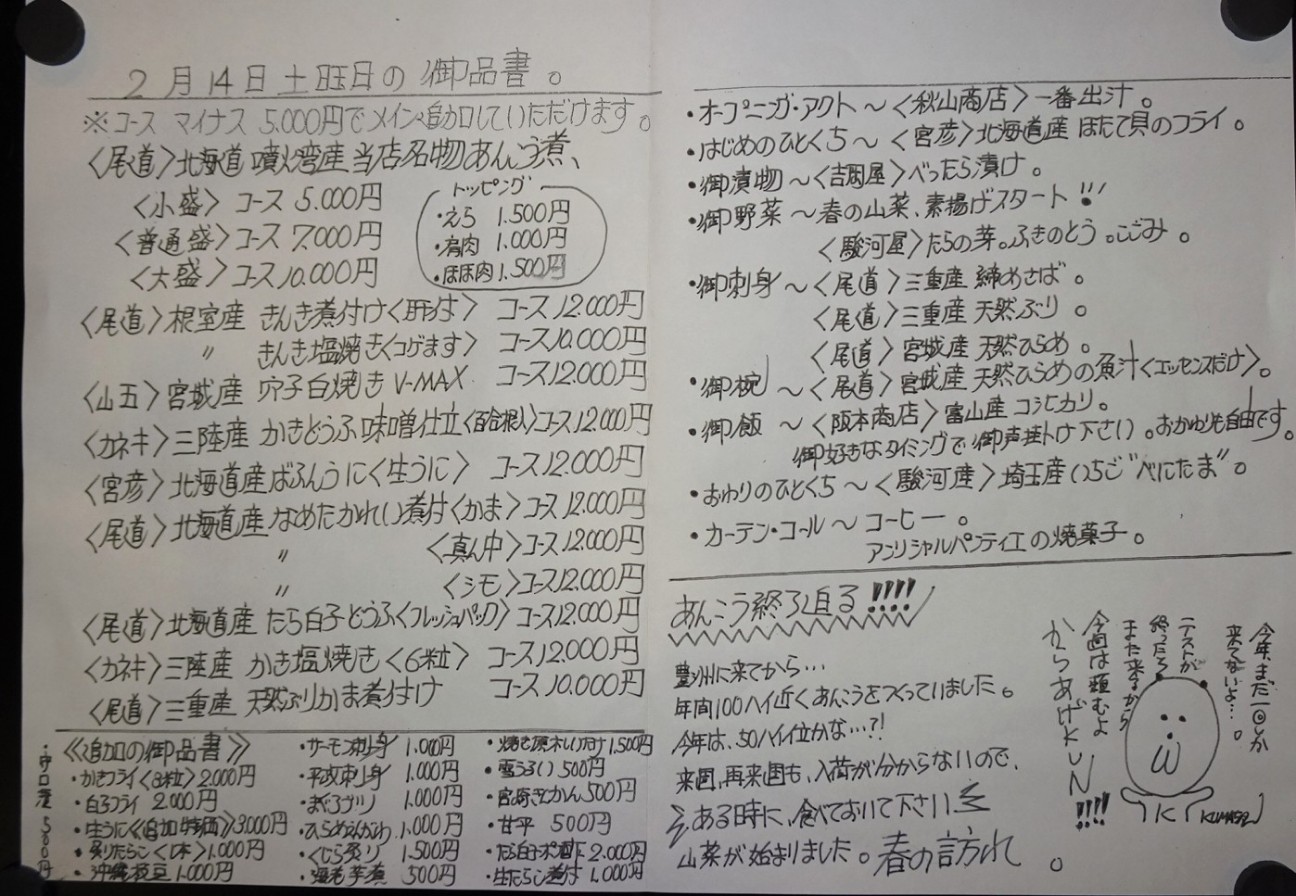 2月14日土曜日の御品書。
※コース マイナス 5.000円でメイン追加していただけます。
〈尾道〉北海道 噴火湾産 当店名物あんこう煮、
〈小盛〉コース 5.000円
〈普通盛〉コース 7.000円
〈大盛〉コース10.000円
トッピング
・えら 1.500円
・肩肉 1.000円
・ほほ肉 1.500円
〈尾道〉根室産 きんき煮付け〈肝付〉 コース12.000円
〃 きんき塩焼き〈コゲます〉 コース10.000円
〈山五〉宮城産 穴子白焼き V-MAX コース12.000円
〈カネキ〉三陸産 かきどうふ味噌仕立〈百合根入〉コース12.000円
〈宮彦〉北海道産ばふんうに〈生うに〉 コース12.000円
〈尾道〉北海道産なめたかれい煮付〈かま〉コース12.000円
〃 〈真ん中〉コース12.000円
〃 〈シモ〉コース12.000円
〈尾道〉北海道産 たら白子どうふ〈フレッシュパック〉コース12.000円
〈カネキ〉三陸産 かき塩焼き〈6粒〉 コース12.000円
〈尾道〉三重産 天然ぶりかま煮付け コース10.000円
《追加の御品書》
・かきフライ〈3粒〉2.000円
・白子フライ 2.000円
・生うに《追加特価》3.000円
・炙りたらこ〈1本〉1.000円
・沖縄枝豆 1.000円
・サーモン刺身 1.000円
・平政刺身 1.000円
・まぐろブツ 1.000円
・ひらめえんがわ 1.000円
・くじら炙り 1.500円
・海老芋煮 500円
・焼き原木しいたけ 1.500円
・雪うるい 500円
・宮崎きんかん 500円
・甘平 500円
・たら白子ポン酢 2.000円
・生たらこ煮付 1.000円
・オープニング・アクト〜〈秋山商店〉一番出汁。
・はじめのひとくち〜〈宮彦〉北海道産 ほたて貝のフライ。
・御漬物〜〈吉岡屋〉べったら漬け。
・御野菜〜春の山菜、素揚げスタート!!
〈駿河屋〉たらの芽。ふきのとう。こごみ。
・御刺身〜〈尾道〉三重産 締めさば。
〈尾道〉三重産 天然ぶり。
〈尾道〉宮城産 天然ひらめ。
・御椀〜〈尾道〉宮城産 天然ひらめの魚汁〈エッセンスだけ〉。
・御飯〜〈阪本商店〉富山産 コシヒカリ。
御好きなタイミングで御声掛け下さい。おかわりも自由です。
・おわりのひとくち〜〈駿河産〉埼玉産いちご“べにたま”。
・カーテン・コール〜コーヒー。
アンリシャルパンティエの焼菓子。
あんこう終了迫る!!!!
豊洲に来てから…
年間100ハイ近くあんこうをつくっていました。
今年は、50ハイ位かな…?!
来週、再来週も、入荷が分からないので、
ある時に、食べておいて下さい。
山菜が始まりました。春の訪れ。
今年、まだ一回しか
来てないよ…。
テストが
終ったら
また来るから
今週は頼むよ
からあげKUN!!!!